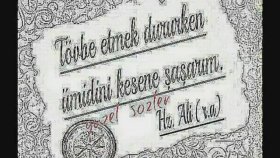 Tövbe etmek dururken
ümidini kesene şaşarım.
güzel sözler
Hz. Ali (r.a)